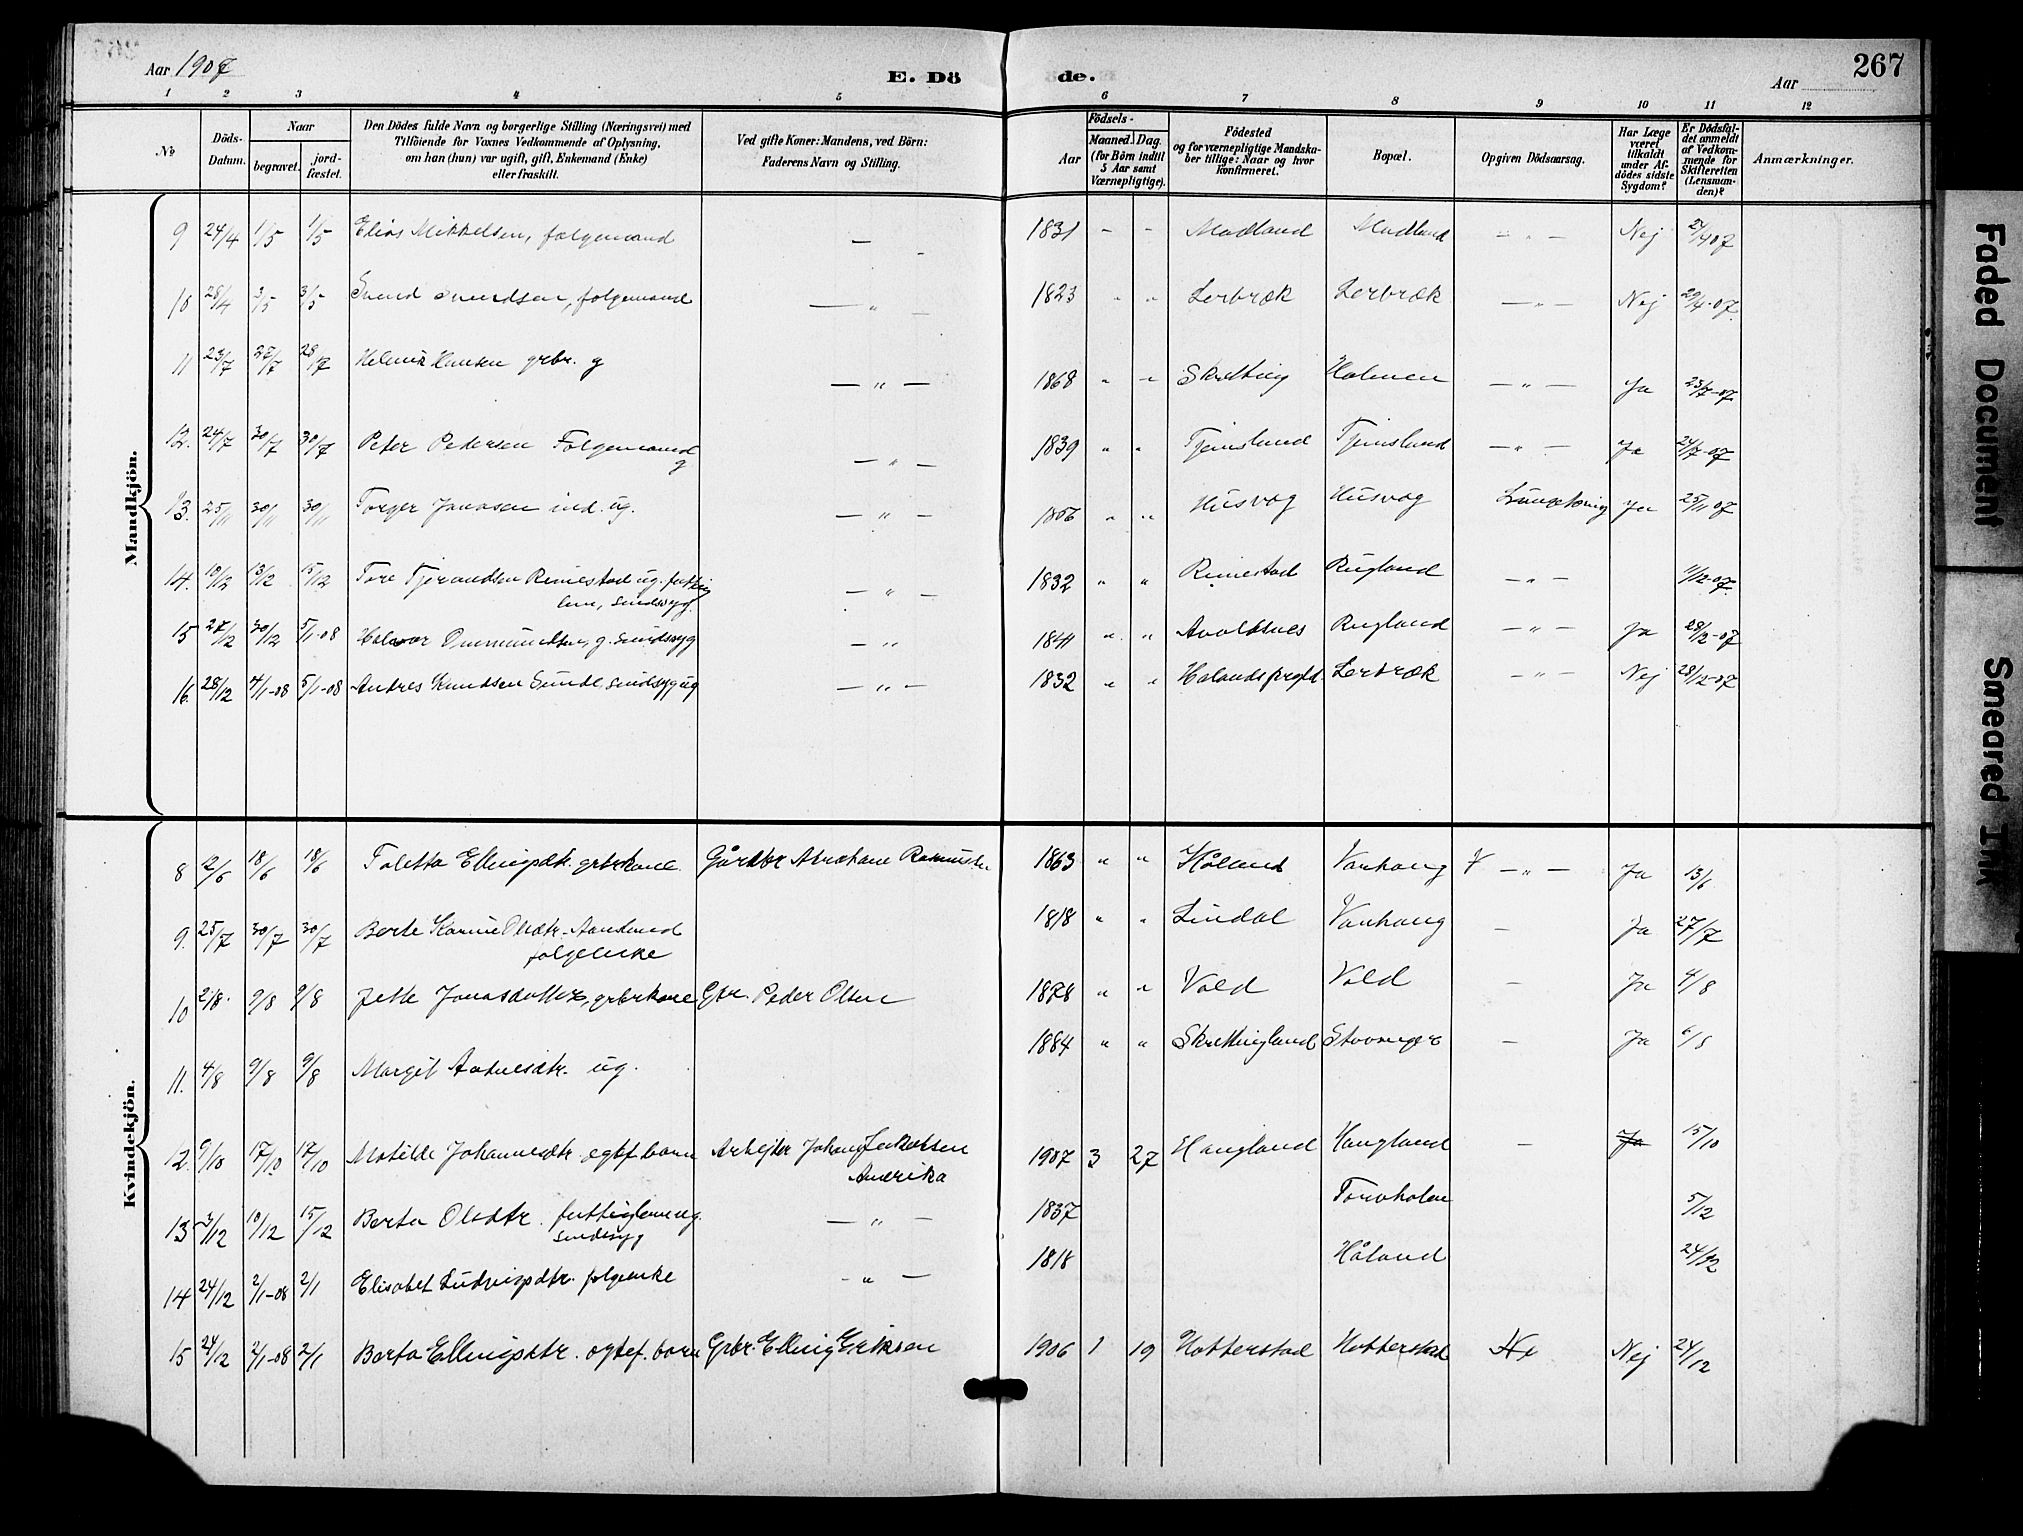 Aar 1907 E. Dö de. Aar 267
1 2 3 4 5 6 7 8 9 10 11 12
No
Döds-
Datum.
Naar
begravet.
jord-
fæstet.
Den Dödes fulde Navn og borgerlige Stilling (Næringsvei) med
Tilföiende for Voxnes Vedkommende af Oplysning,
om han (hun) var ugift, gift, Enkemand (Enke)
eller fraskilt.
Ved gifte Koner: Mandens, ved Börn:
Faderens Navn og Stilling.
Födsels-
Aar
Maaned. Dag.
(for Börn indtil
5 Aar samt
Værnepligtige).
Födested
og for værnepligtige Mandska-
ber tillige: Naar og hvor
konfirmeret.
Bopæl.
Opgiven Dödsaarsag.
Har Læge
været
tilkaldt
under Af-
dödes sidste
Sygdom?
Er Dödsfal-
det anmeldt
af Vedkom-
mende for
Skifteretten
(Lensman-
den)?
Anmærkninger.
Mandkjön.
9 24/4 1/5 1/5 Elias Mikkelsen, folgemand — 1831 - - Madland Madland — " — Nej 27/4 07
10 28/4 3/5 3/5 Svend Svendsen, folgemand — " — 1823 " " Lerbræk Lerbræk — " — Nej 29/4-07.
11 23/7 27/7 28/7 Hansen grbr. g — " — 1868 " " Skretting Holmen — " — Ja 23/7-07.
12. 24/7 30/7 30/7 Peter Pedersen Folgemand
g — " — 1839 " " Tjemsland Tjemsland — " — Ja 24/7-07
13. 25/11 30/11 30/11 Torger Jonasen ind. ug. — " — 1856 " " Husvog Husvog Lungetæring Ja 25/11 07
14. 10/12 13/12 15/12 Tore Tjerandsen Rimestad ug. fattig
lem, sindssyg. — " — 1832 " " Rimestad Rugland — " — 11/12-07.
15 27/12 30/12 5/1-08 Halvor Ommundsen, g. sindssyg — " 1841 " " Avaldsnes Rugland — " — Ja 28/12-07
16. 28/12 4/1-08 5/1-08 Andres Knudsen Sunde sindssyg ug — " — 1832 " " Lerbræk — " — Nej 28/12-07
Kvindekjön.
8 12/6 18/6 18/6 Toletta Ellingsdtr. grbrkone. Gårdbr Abraham 1863 " " Håland Varhaug — " — Ja 13/6
9. 25/7 30/7 30/7 Berte Karine Olsdtr. Aanderud
folgeenke 1818 " " Lindal Varhaug — Ja 27/7
10 2/8. 9/8 9/8 Jette Jonasdotter, grbrkone Gbr. Peder Olsen 1878 " " Vold Vold — Ja 4/8
11. 4/8 9/8 9/8 Margit Antnesdtr. ug. 1884 " " Skrettingland Stavanger — Ja 6/8
12. 9/10 17/10 17/10 Matilde Johannesdtr. egtef barn Arbejder Johans Jakobsen
Amerika 1907 3 27 Haugland Haugland — Ja 15/10
13 3/12 10/12 15/12 Berta Olsdtr. fattiglem ug.
sindssyg — " — 1837 Torvholen 5/12
14 24/12 2/1-08 2/1 Elisabet Ludvigsdtr. folgenke - " — 1818 Håland 24/12
15 24/12 2/1-08 2/1 Berta Ellingsdtr. egtef. barn Grbr. Elling Eriksen 1906 1 19 Hotterstad Hotterstad Nej 24/12
Faded Document
Smeared Ink